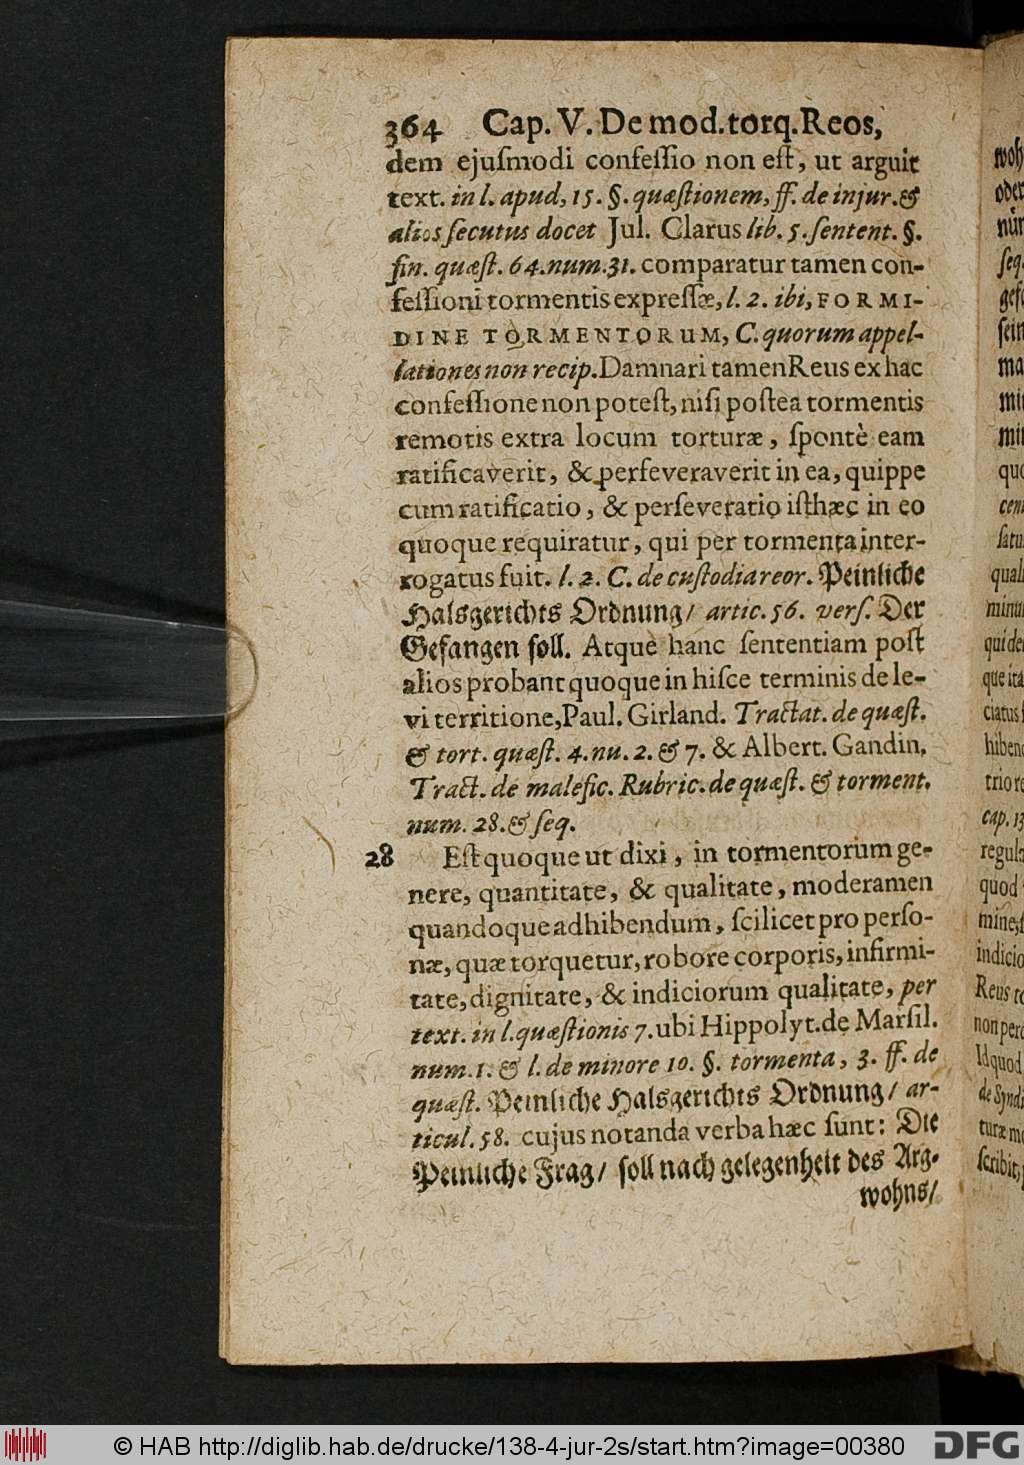 364 Cap. V. De mod. torq. Reos,
dem ejuſmodi confeſſio non eſt, ut arguit
text. in l. apud, 15. §. quæſtionem, ff. de injur. &
alios ſecutus docet Jul. Clarus lib. 5. ſentent. §.
fin. quæſt. 64. num. 31. comparatur tamen con-
feſſioni tormentis expreſſæ, l. 2. ibi, FORMI-
DINE TORMENTORUM, C. quorum appel-
lationes non recip. Damnari tamen Reus ex hac
confeſſione non poteſt, niſi poſtea tormentis
remotis extra locum torturæ, ſpontè eam
ratificaverit, & perſeveraverit in ea, quippe
cum ratificatio, & perſeveratio iſthæc in eo
quoque requiratur, qui per tormenta inter-
rogatus fuit. l. 2. C. de cuſtodia reor. Peinliche
Halsgerichts Ordnung/ artic. 56. verſ. Der
Gefangen ſoll. Atque hanc ſententiam poſt
alios probant quoque in hiſce terminis de le-
vi territione, Paul. Girland. Tractat. de quæſt.
& tort. quæſt. 4. nu. 2. & 7. & Albert. Gandin.
Tract. de malefic. Rubric. de quæſt. & torment.
num. 28. & ſeq.
28 Eſt quoque ut dixi, in tormentorum ge-
nere, quantitate, & qualitate, moderamen
quandoque adhibendum, ſcilicet pro perſo-
næ, quæ torquetur, robore corporis, infirmi-
tate, dignitate, & indiciorum qualitate, per
text. in l. quæſtionis 7. ubi Hippolyt. de Marſil.
num. 1. & l. de minore 10. §. tormenta, 3. ff. de
quæſt. Peinliche Halsgerichts Ordnung/ ar-
ticul. 58. cujus notanda verba hæc ſunt: Die
Peinliche Frag/ ſoll nach gelegenheit des Arg-
wohns/
oder
ſeq.
quali
cap. 13
quod
indicio
Reus to
Id quod
ſcribit,
© HAB http://diglib.hab.de/drucke/138-4-jur-2s/start.htm?image=00380 DFG